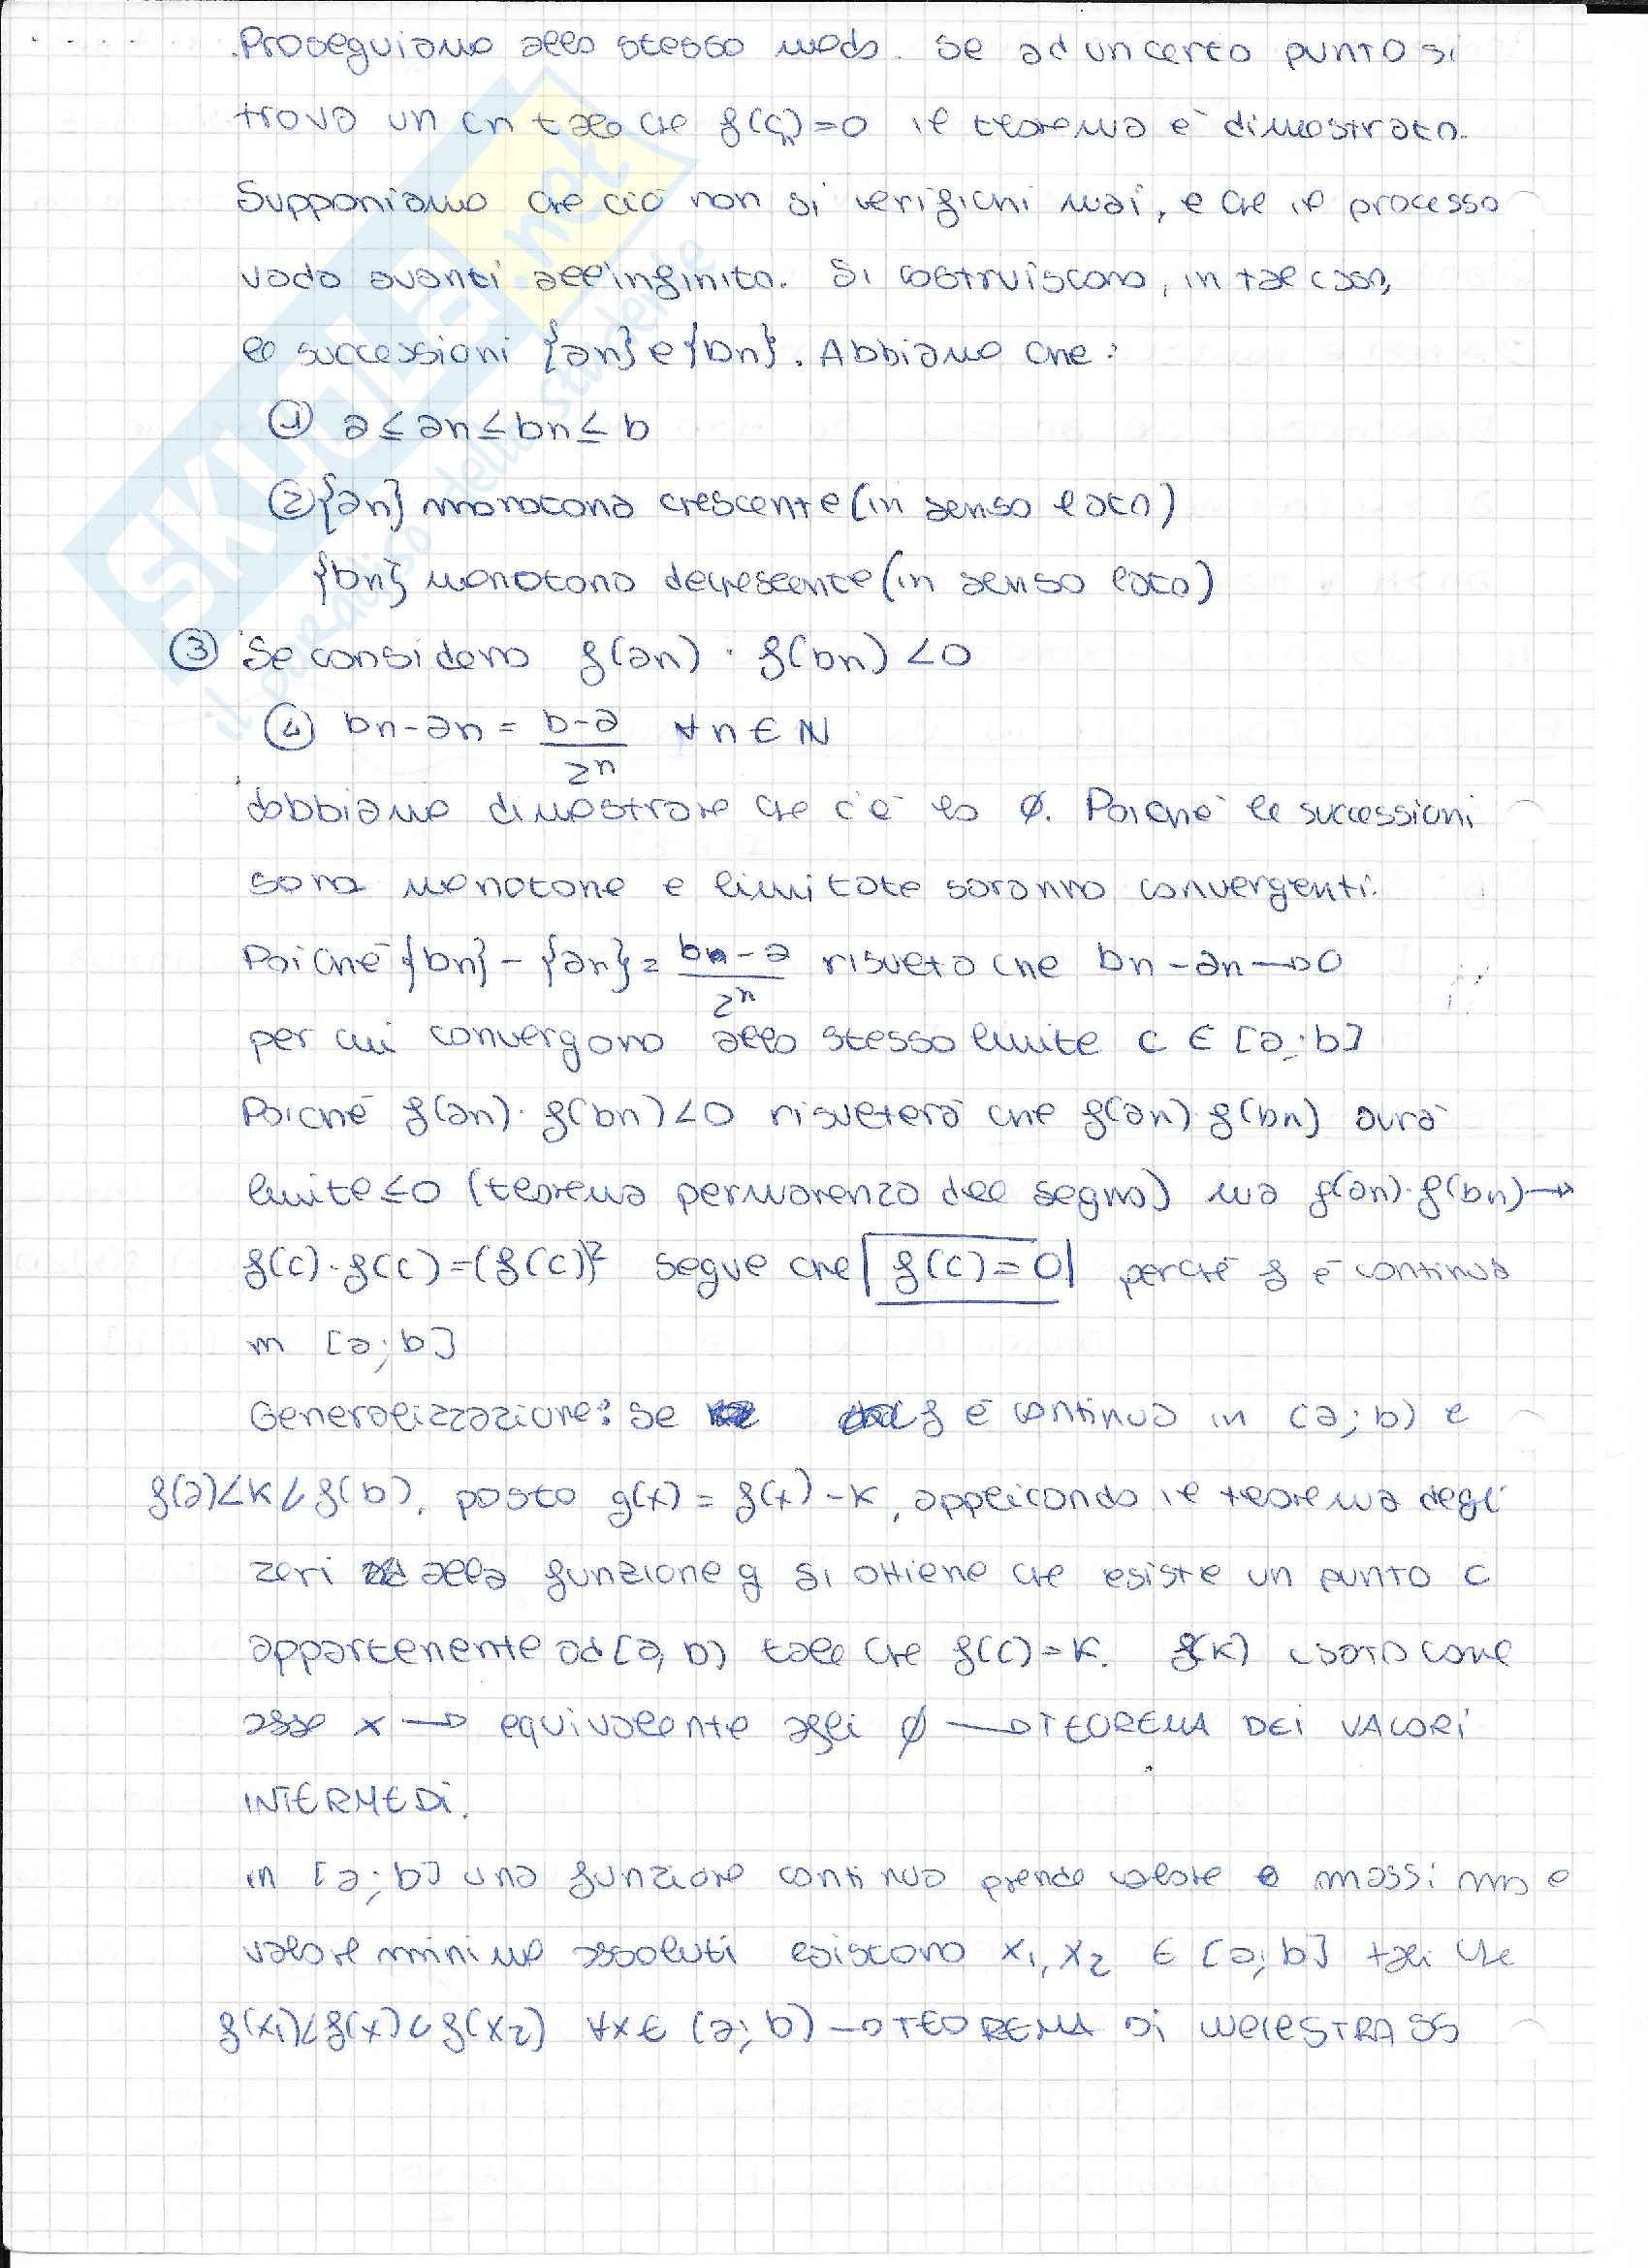 Proseguiamo allo stesso modo. Se ad un certo punto si
trova un cn tale che f(cn)=0 il teorema è dimostrato.
Supponiamo che ciò non si verifichi mai, e che il processo
vada avanti all'infinito. Si costruiscono, in tal caso,
le successioni {an} e {bn}. Abbiamo che:
① a≤an≤bn≤b
② {an} monotona crescente (in senso lato)
{bn} monotona decrescente (in senso lato)
③ Se considero f(an) · f(bn) <0
④ bn-an = (b-a)/2ⁿ ∀n∈ℕ
dobbiamo dimostrare che c'è lo ∅. Poichè le successioni
sono monotone e limitate saranno convergenti.
Poichè {bn} - {an} = (b-a)/2ⁿ risulta che bn-an→0
per cui convergono allo stesso limite c ∈ [a;b]
Poichè f(an)·f(bn)<0 risulterà che f(an)·f(bn) avrà
limite≤0 (teorema permanenza del segno) ma f(an)·f(bn)→
f(c)·f(c)=(f(c))² segue che f(c)=0 perchè f è continua
in [a;b]
Generalizzazione: se f è continua in (a;b) e
f(a)<K<f(b), posto g(x) = f(x)-K, applicando il teorema degli
zeri alla funzione g si ottiene che esiste un punto c
appartenente ad [a,b) tale che f(c)=K. f(K) usato come
asse x → equivalente agli ∅ → TEOREMA DEI VALORI
INTERMEDI.
in [a;b] una funzione continua prende valore massimo e
valore minimo assoluti esistono x₁,x₂ ∈ [a;b] tali che
f(x₁)<f(x)<f(x₂) ∀x∈ (a;b) → TEOREMA DI WEIESTRASS
SKUOLA.net
il paradiso dello studente